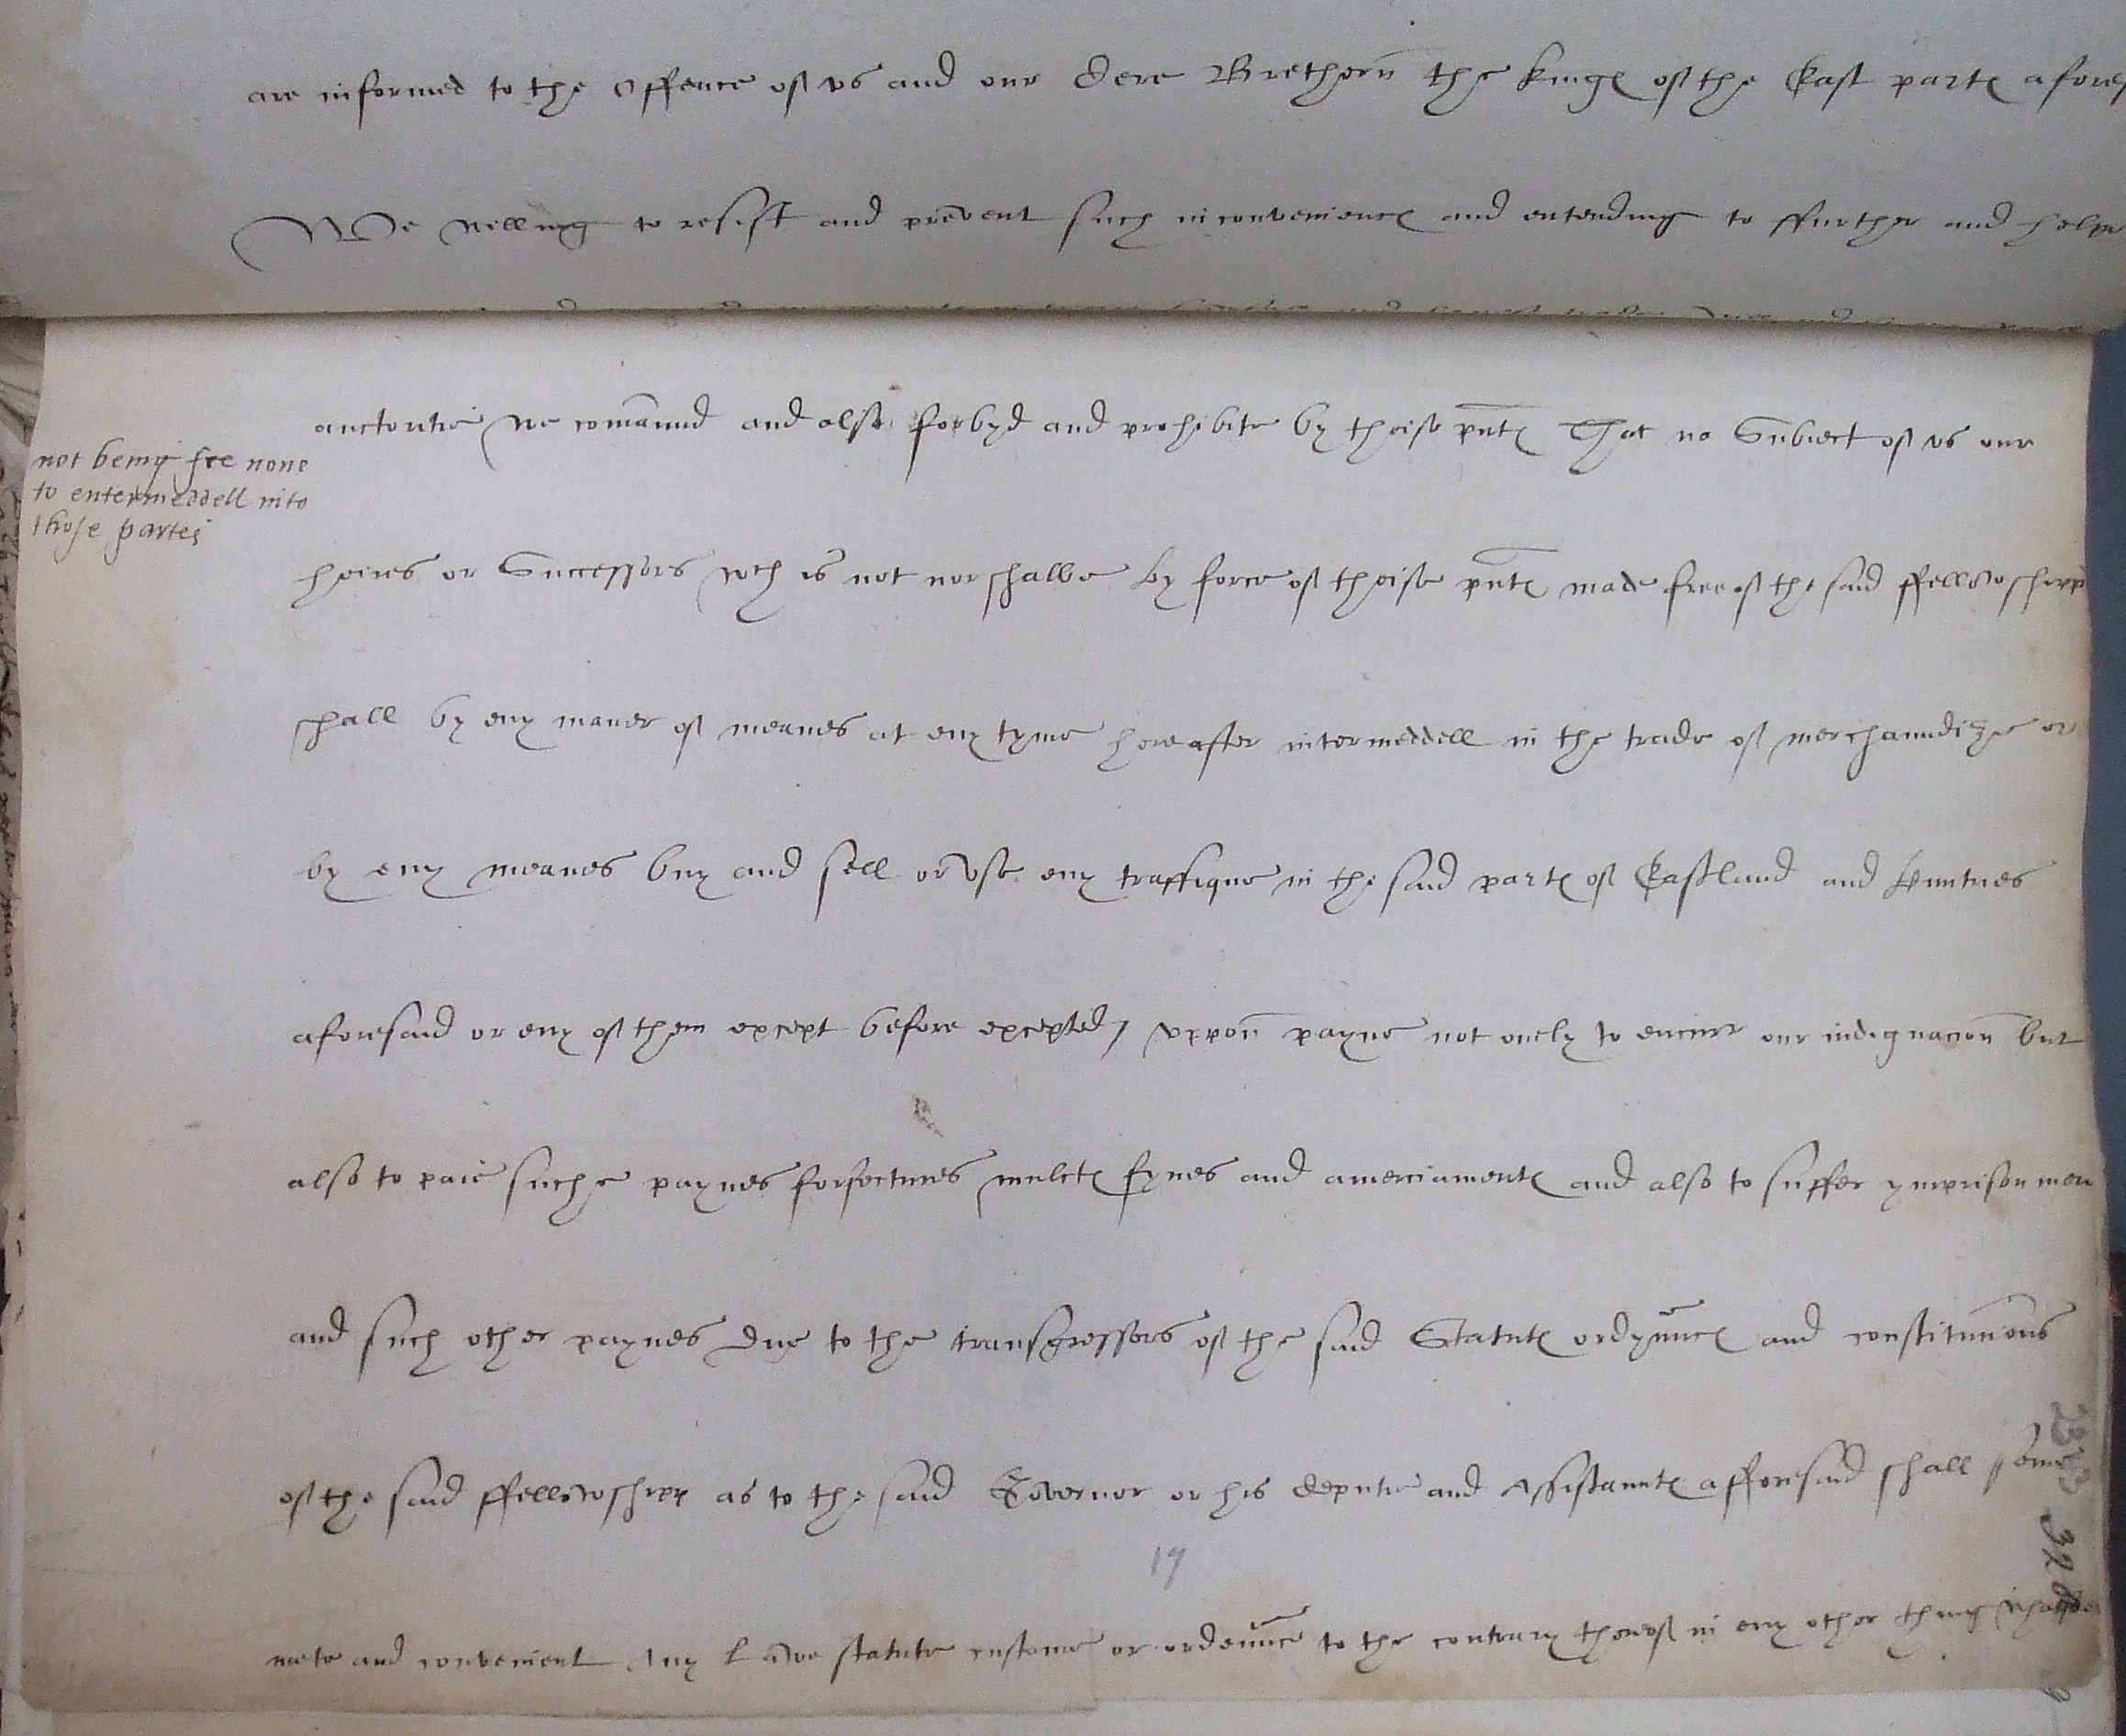 are informed to the Offence of vs and our Dere Brethern the kinges of the East partes afores
We willing to resist and prevent such inconveniences and entending to ffurther and helpe
auctoritie we comaund and also forbyd and prohibite by theise pntes That no Subiect of vs our
not being free none
to entermeddell into
those partes
heires or Successors wch is not nor shalbe by force of theise pntes made free of the said ffellowshipp
shall by eny maner of meanes at eny tyme hereafter intermeddell in the trade of merchaundize or
by eny meanes buy and sell or vse eny traffique in the said partes of Eastland and Cuntries
aforesaid or eny of them except before excepted / vppon payne not onely to encurr our indignacion but
also to paie suche paynes forfectures mulctes fynes and amerciamentes and also to suffer ymprisonmen
and such other paynes due to the transgressors of the said Statutes ordynnces and constitucions
of the said ffellowshipp as to the said Governor or his deputie and Assistauntes afforesaid shall seme
19
mete and convenient Any Lawe statute custome or ordennce to the contrary thereof in eny other thing
328